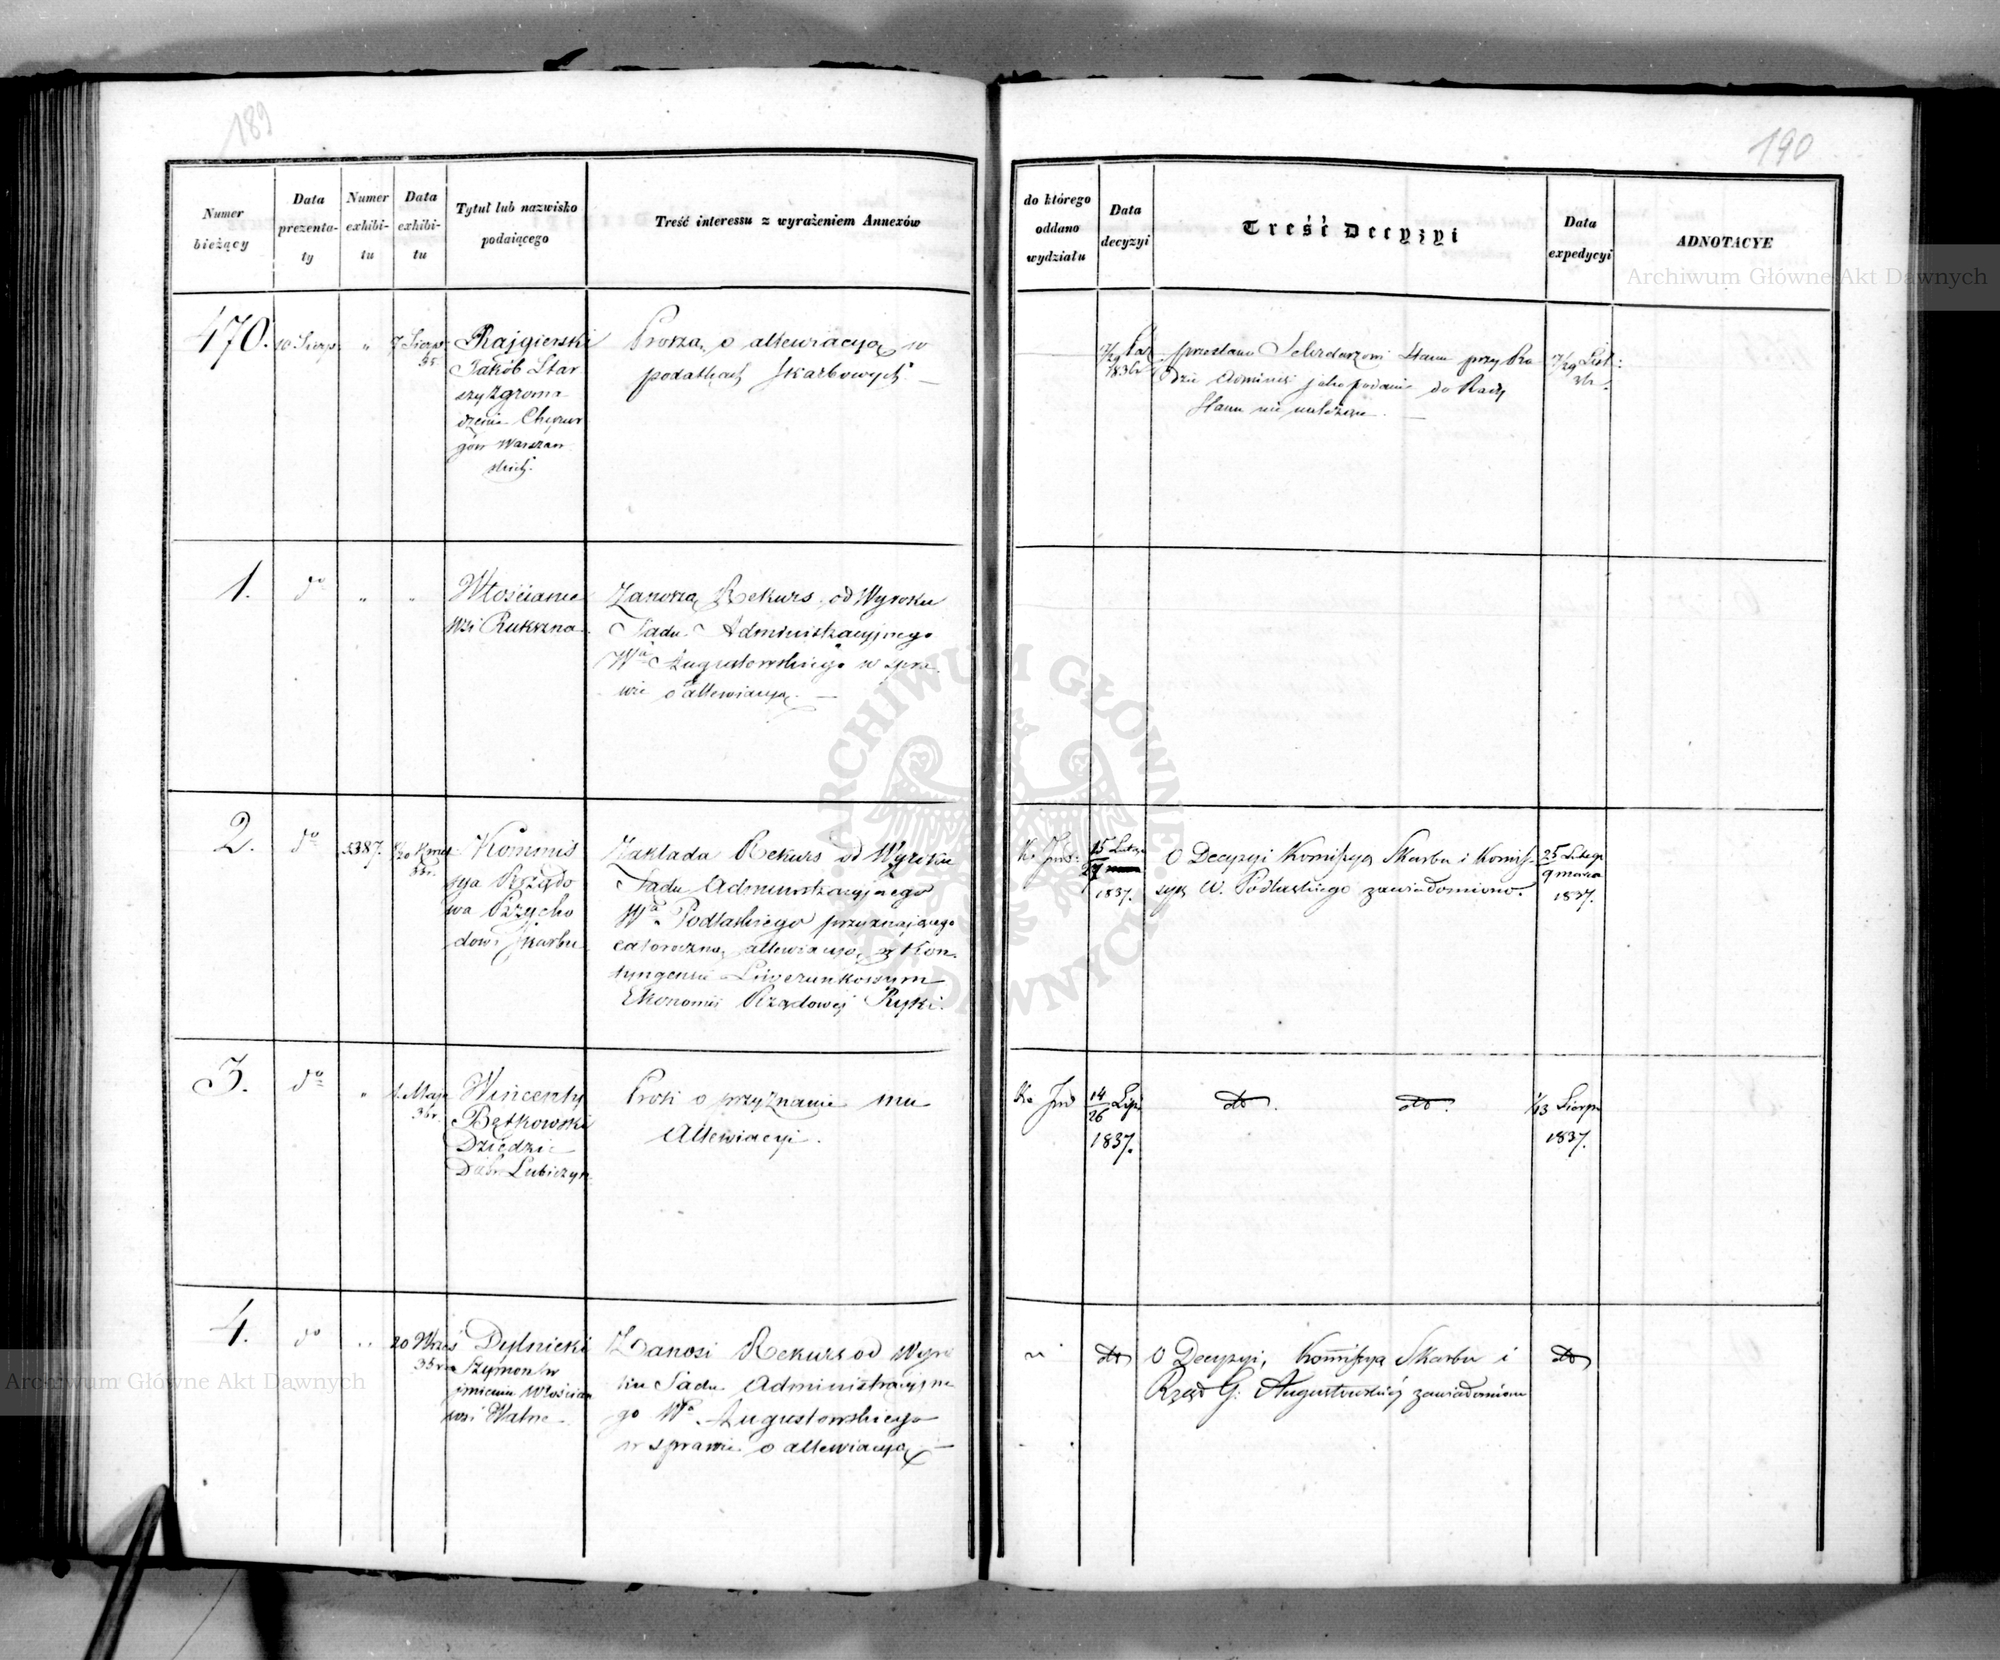 189
Numer bieżący
Data prezentaty
Numer exhibitu
Data exhibitu
Tytuł lub nazwisko podaiącego
Treść interessu z wyrażeniem Annexów
470.
10 Sierp.
"
7 Sierp.
35.
Rajgierski
Jakób Star
szy Zgroma
dzenia Chirur
gów Warszaw
skich.
Proszą o allewiacyą w
podatkach skarbowych
1.
do
"
"
Włościanie
Wsi Rukszna
Zanoszą Rekurs od Wyroku
Sadu Administracyjnego
Wa Augustowskiego w spra
wie o allewiacyą.
2.
do
3387.
8/20 Kwiet
35r.
Kommis
sya Rządo
wa Przycho
dow i Skarbu
Zakłada Rekurs od Wyroku
Sadu Administracyjnego
Wa Podlaskiego przyznającego
całoroczną allewiacyą z Kon
tyngensu Liwerunkowym
Ekonomii Rządowej Ryki.
3.
do
"
1. Maja
35r.
Wincenty
Bętkowski
Dziedzic
Dóbr Lubiczyn
Prosi o przyznanie mu
Allewiacyi.
4.
do
"
20 Wrześ
35r.
Dylnicki
Szymon w
imieniu Włościan
wsi Walne
Zanosi Rekurs od Wyro
ku Sadu Administracyjne
go Wa Augustowskiego
w sprawie o allewiacyą
190
do którego oddano wydziału
Data decyzyi
Treść Decyzyi
Data expedycyi
ADNOTACYE
17/29
przesłano Sekretarzowi Stanu przy Ra
dzie Adminis: jako podanie do Rady
Stanu nie należące.
17/29 List:
15 Lutego
27
1837.
O Decyzyi Komissya Skarbu i Komis
sya W. Podlaskiego zawiadomiono.
25 Lutego
9 marca
1837.
14/26 Lip
1837.
do.
do.
1/13 Sierp
1837.
"
do
O Decyzyi, Komissya Skarbu i
Rząd G: Augustowskiéj zawiadomiono
do
Archiwum Główne Akt Dawnych
Archiwum Główne Akt Dawnych
ARCHIWUM GŁÓWNE AKT DAWNYCH